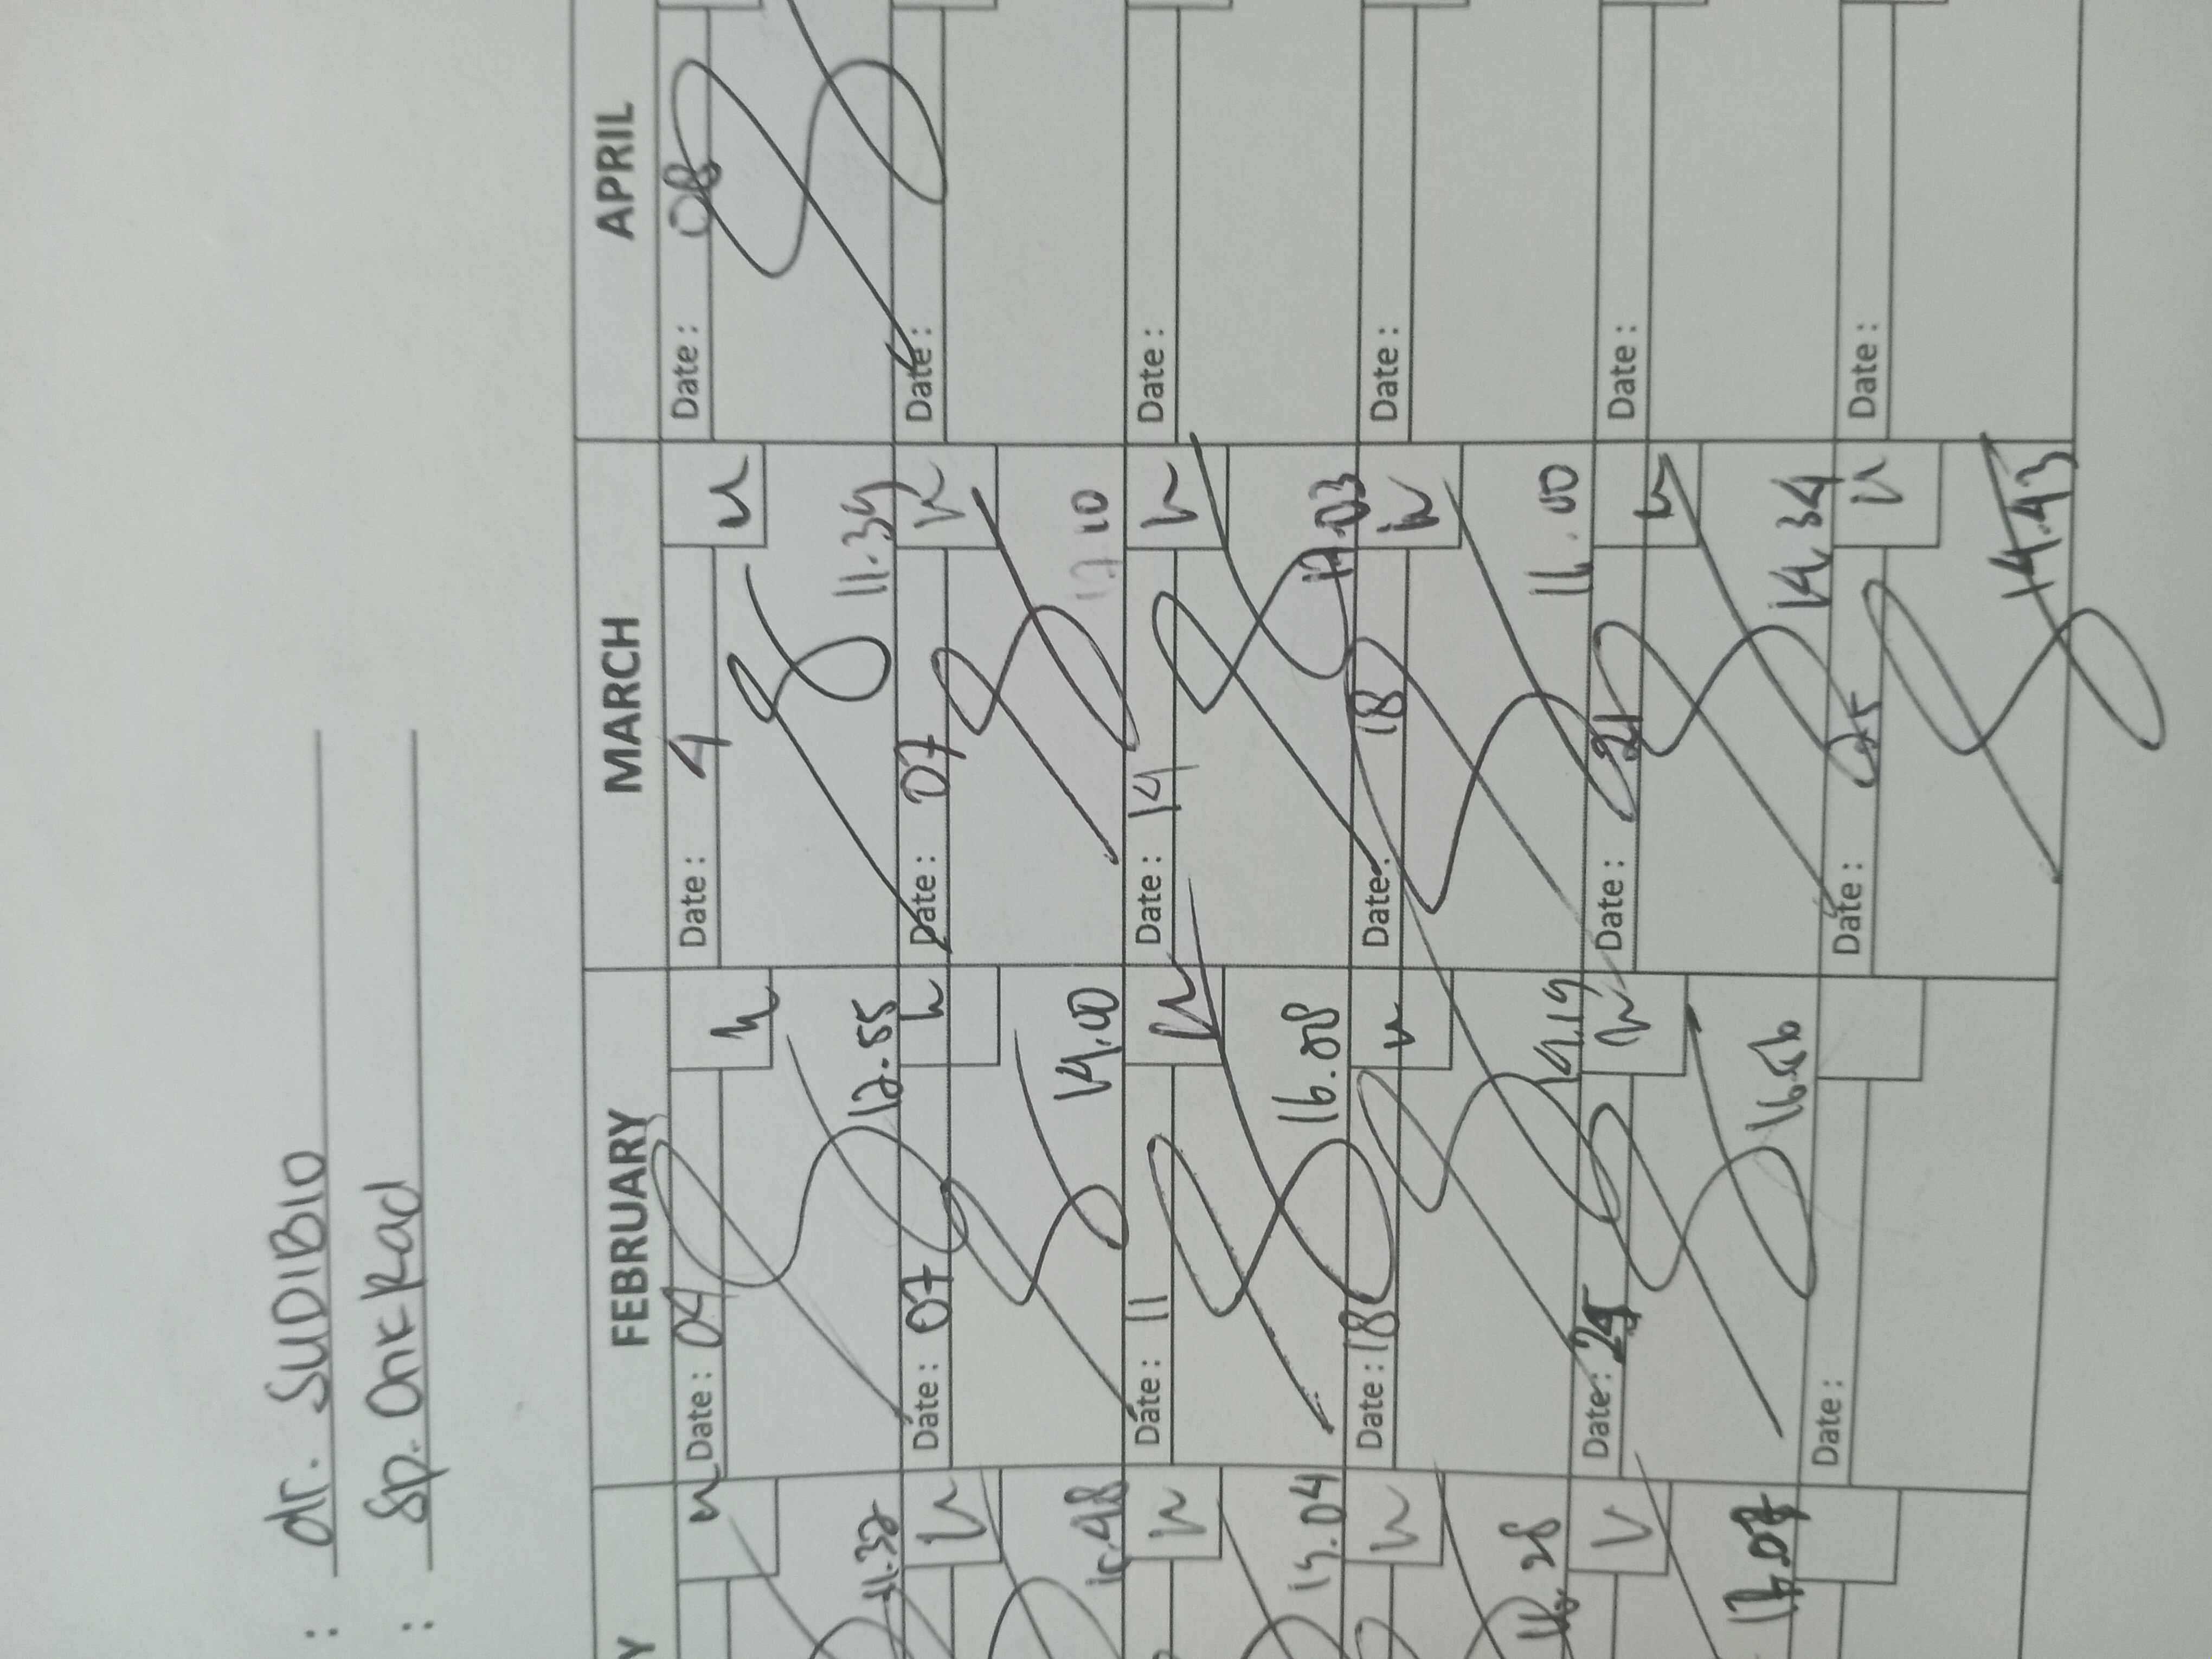 : dr. SUDIBIO
: Sp. Onk Rad
Y FEBRUARY MARCH APRIL
Date: 04 Date: 4 Date: 08
11.32 12.55 11.39
Date: 07 Date: 07 Date:
10.48 14.00 17.10
Date: 11 Date: 14 Date:
15.04 16.08 17.03
Date: 18 Date: 18 Date:
16.28 14.19 11.00
Date: 25 Date: 21 Date:
14.34
Date: Date: 25 Date:
14.43